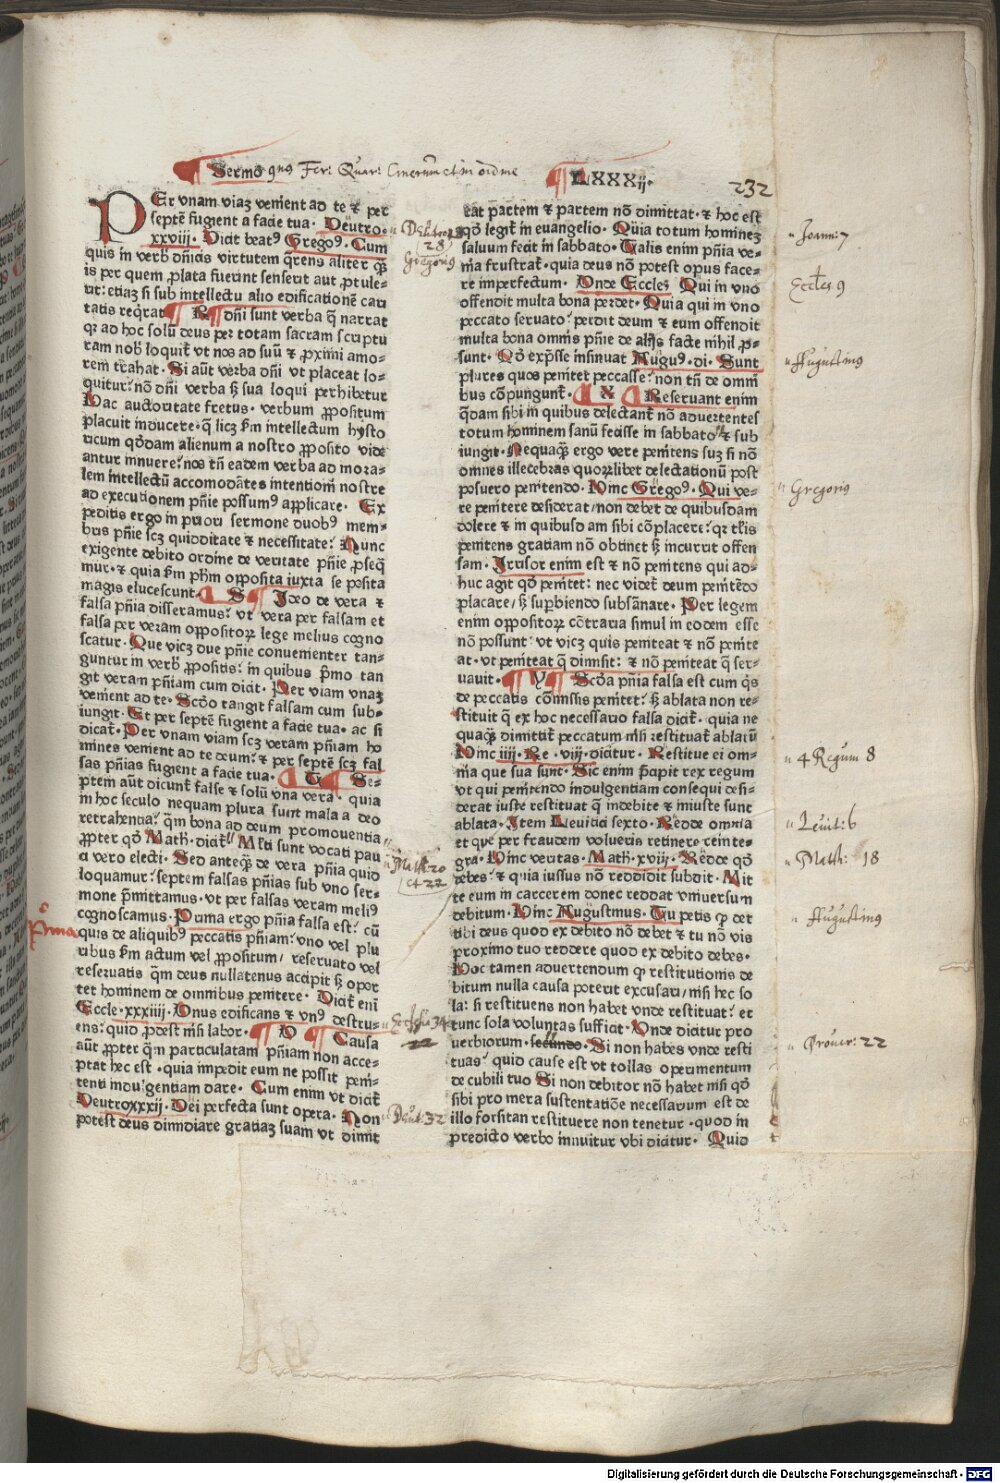 Sermo qnus Fer: Quar: Cinerum et in ordine
LXXXij.
232
PEr vnam viaz venient ad te ⁊ per
septē fugient a facie tua. Deutro.
xxviij. Dicit beatꝰ Gregoꝰ. Cum
quis in verb̄ dn̄icis virtutem q̄rens aliter qͣ̄
is per quem ꝓlata fuerint senserit aut ꝓtule-
rit: etiaz si sub intellectu alio edificationē cari
tatis reqͥrat R dn̄i sunt verba q̄ narrat
qꝛ ad hoc solū deus per totam sacram scriptu
ram nob̄ loquit̄ vt nos ad suū ⁊ ꝓximi amo-
rem trahat. Si aūt verba dn̄i vt placeat lo-
quitur: nō dn̄i verba sꝫ sua loqui perhibetur
Hac auctoritate fretus. verbum ꝓpositum
placuit inducere. q̄ licꝫ ẜm intellectum hysto
ricum qd̄dam alienum a nostro ꝓposito vide
antur innuere: nos tn̄ eadem verba ad mora-
lem intellectū accomodātes intentioni nostre
ad executionem pn̄ie possumꝰ applicare. Ex
peditis ergo in priori sermone duobꝰ mem-
bris pn̄ie scꝫ quidditate ⁊ necessitate: Nunc
exigente debito ordine de veritate pn̄ie ꝓseq̄
mur. ⁊ quia ẜm ph̄m opposita iuxta se posita
magis elucescunt. S Ideo de vera ⁊
falsa pn̄ia disseramus: vt vera per falsam et
falsa per veram oppositoꝝ lege melius cogno
scatur. Que vicꝫ due pn̄ie conuenienter tan-
guntur in verb̄ ꝓpositis: in quibus pͥmo tan
git veram pn̄iam cum dicit. Per viam vnaꝫ
venient ad te. Scd̄o tangit falsam cum sub-
iungit. Et per septē fugient a facie tua. ac si
dicat̄. Per vnam viam scꝫ veram pn̄iam ho
mines venient ad te deum: ⁊ per septē scꝫ fal
sas pn̄ias fugient a facie tua. T Se-
ptem aūt dicunt̄ false ⁊ solū vna vera. quia
in hoc seculo nequam plura sunt mala a deo
retrahentia: qͥm bona ad deum promouentia
ꝓpter qd̄ Math. dicit̄ Ml̄ti sunt vocati pau
ci vero electi. Sed anteqͣ̄ de vera pn̄ia quid
loquamur: septem falsas pn̄ias sub vno ser-
mone pͥmittamus. vt per falsas veram meliꝰ
cognoscamus. Prima ergo pn̄ia falsa est: cū
quis de aliquibꝰ peccatis pn̄iam: vno vel plu
ribus ẜm actum vel ꝓpositum/ reseruato vel
reseruatis qͥm deus nullatenus accipit sꝫ opor
tet hominem de omnibus penitere. Dicit̄ eni̅
Eccle. xxxiiij. Vnus edificans ⁊ vnꝰ destru-
ens: quid ꝓdest nisi labor. V Causa
aūt ꝓpter qͣ̄ particulatam pn̄iam non acce-
ptat hec est. quia impedit eum ne possit peni-
tenti indulgentiam dare. Cum enim vt dicit̄
Deutroxxxij. Dei perfecta sunt opera. Non
potest deus dimidiare gratiaꝫ suam vt dimit
Prima
Deutro
28
Gregoriꝰ
Math: 20
et 22
34
22
Deut: 32
tat partem ⁊ partem nō dimittat. ⁊ hoc est
qd̄ legit̄ in euangelio. Quia totum hominez
saluum fecit in sabbato. Talis enim pn̄ia ve-
nia frustrat̄. quia deus nō potest opus face-
re imperfectum. Vnde Eccles Qui in vno
offendit multa bona perdet. Quia qui in vno
peccato seruato: perdit deum ⁊ eum offendit
multa bona omnis pn̄ie de alijs facte nihil ꝓ-
sunt. Qd̄ exp̄sse insinuat Auguꝰ. di. Sunt
plures quos penitet peccasse: non tn̄ de omni
bus cōpungunt̄. X Reseruant enim
qd̄am sibi in quibus delectant̄ nō aduertentes
totum hominem sanū fecisse in sabbato ⁊ sub
iungit. Nequaqͣ̄ ergo vere penitens suꝫ si nō
omnes illecebras quorūlibet delectationū post
posuero penitendo. Hinc Gregoꝰ. Qui ve-
re penitere desiderat/non debet de quibusdam
dolere ⁊ in quibusdam sibi cōplacere: qꝛ tl̄is
penitens gratiam nō obtinet sꝫ incurrit offen
sam. Irrisor enim est ⁊ nō penitens qui ad-
huc agit qd̄ penitet: nec videt̄ deum penitēdo
placare/ sꝫ suꝑbiendo subsānare. Per legem
enim oppositoꝝ cōtraria simul in eodem esse
nō possunt: vt vicꝫ quis peniteat ⁊ nō penite
at. vt peniteat q̄ dimisit: ⁊ nō peniteat q̄ ser-
uauit. Y Scd̄a pn̄ia falsa est cum qͥs
de peccatis cōmissis penitet: sꝫ ablata non re-
stituit q̄ ex hoc necessario falsa dicit̄. quia ne
quaqͣ̄ dimittit̄ peccatum nisi restituat̄ ablatū
Hinc iiij. Re. viij. dicitur. Restitue ei om-
nia que sua sunt. Sic enim p̄cipit rex regum
vt qui penitendo indulgentiam consequi desi-
derat iuste restituat q̄ indebite ⁊ iniuste sunt
ablata. Item Leuitici sexto. Redde omnia
et que per fraudem volueris retinere celnte-
gra. Hinc veritas. Math. xviij. Redde qd̄
debes: ⁊ quia iussus nō reddidit subdit. Mit
te eum in carcerem donec reddat vniuersum
debitum. Hinc Augustinus. Tu petis qꝫ det
tibi deus quod ex debito nō debet ⁊ tu nō vis
proximo tuo reddere quod ex debito debes.
Hoc tamen aduertendum qꝫ restitutionis de
bitum nulla causa poterit excusari/nisi hec so
la: si restituens non habet vnde restituat: et
tunc sola voluntas sufficit. Vnde dicitur pro
uerbiorum. secundo. Si non habes vnde resti
tuas: quid cause est vt tollas operimentum
de cubili tuo Si non debitor nō habet nisi qd̄
sibi pro mera sustentatiōe necessarium est de
illo forsitan restituere non tenetur. quod in
predicto verbo innuitur vbi dicitur. Quid
Joann: 7
Eccles 9
Augustinꝰ
Gregoriꝰ
4 Regum 8
Leuit: 6
Math: 18
Augustinꝰ
Prouer: 22
Digitalisierung gefördert durch die Deutsche Forschungsgemeinschaft - DFG